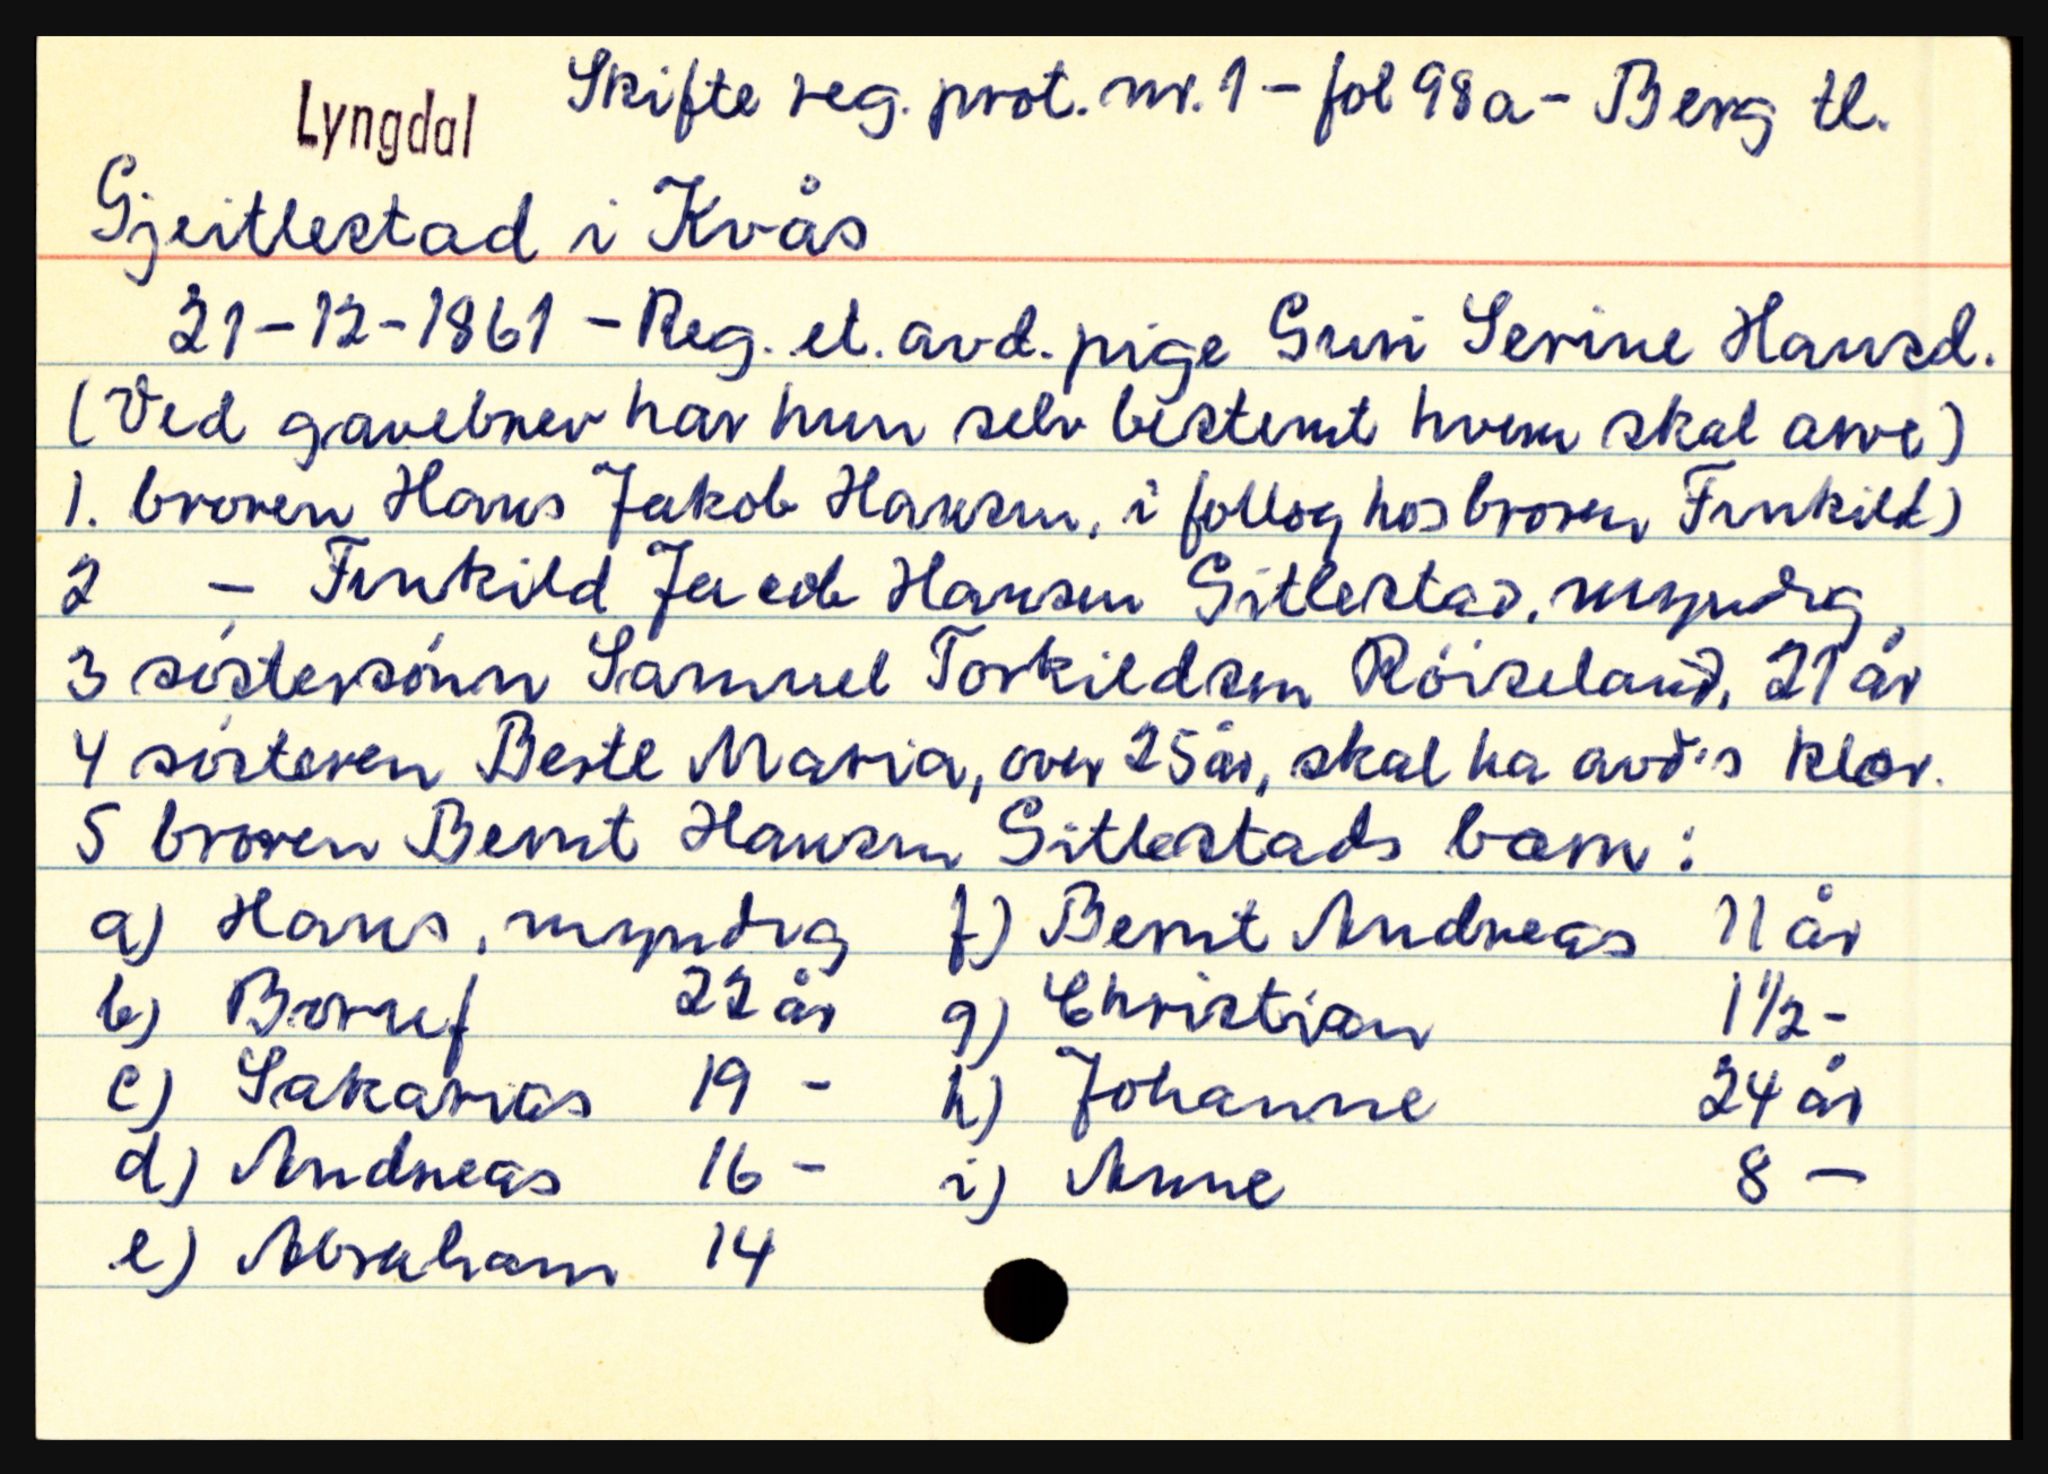 Lyngdal
Skifte reg. prot. nr. 1 - fol 98a - Berg tl.
Gjeitlestad i Kvås
21-12-1861 - Reg. et. avd. pige Guri Serine Hansd.
(Ved gavebrev har hun selv bestemt hvem skal arve)
1. broren Hans Jakob Hansen, i follog hos broren Finkild)
2 - Finkild Jacob Hansen Gitlestad, myndig
3 søstersønn Samuel Torkildsen Røiseland, 21 år
4 søsteren Berte Maria, over 25 år, skal ha avd's klær.
5 broren Bernt Hansen Gitlestads barn:
a) Hans, myndig
b) Boruf 22 år
c) Sakarias 19 -
d) Andreas 16 -
e) Abraham 14
f) Bernt Andreas 11 år
g) Christian 1 1/2 -
h) Johanne 24 år
i) Anne 8 -